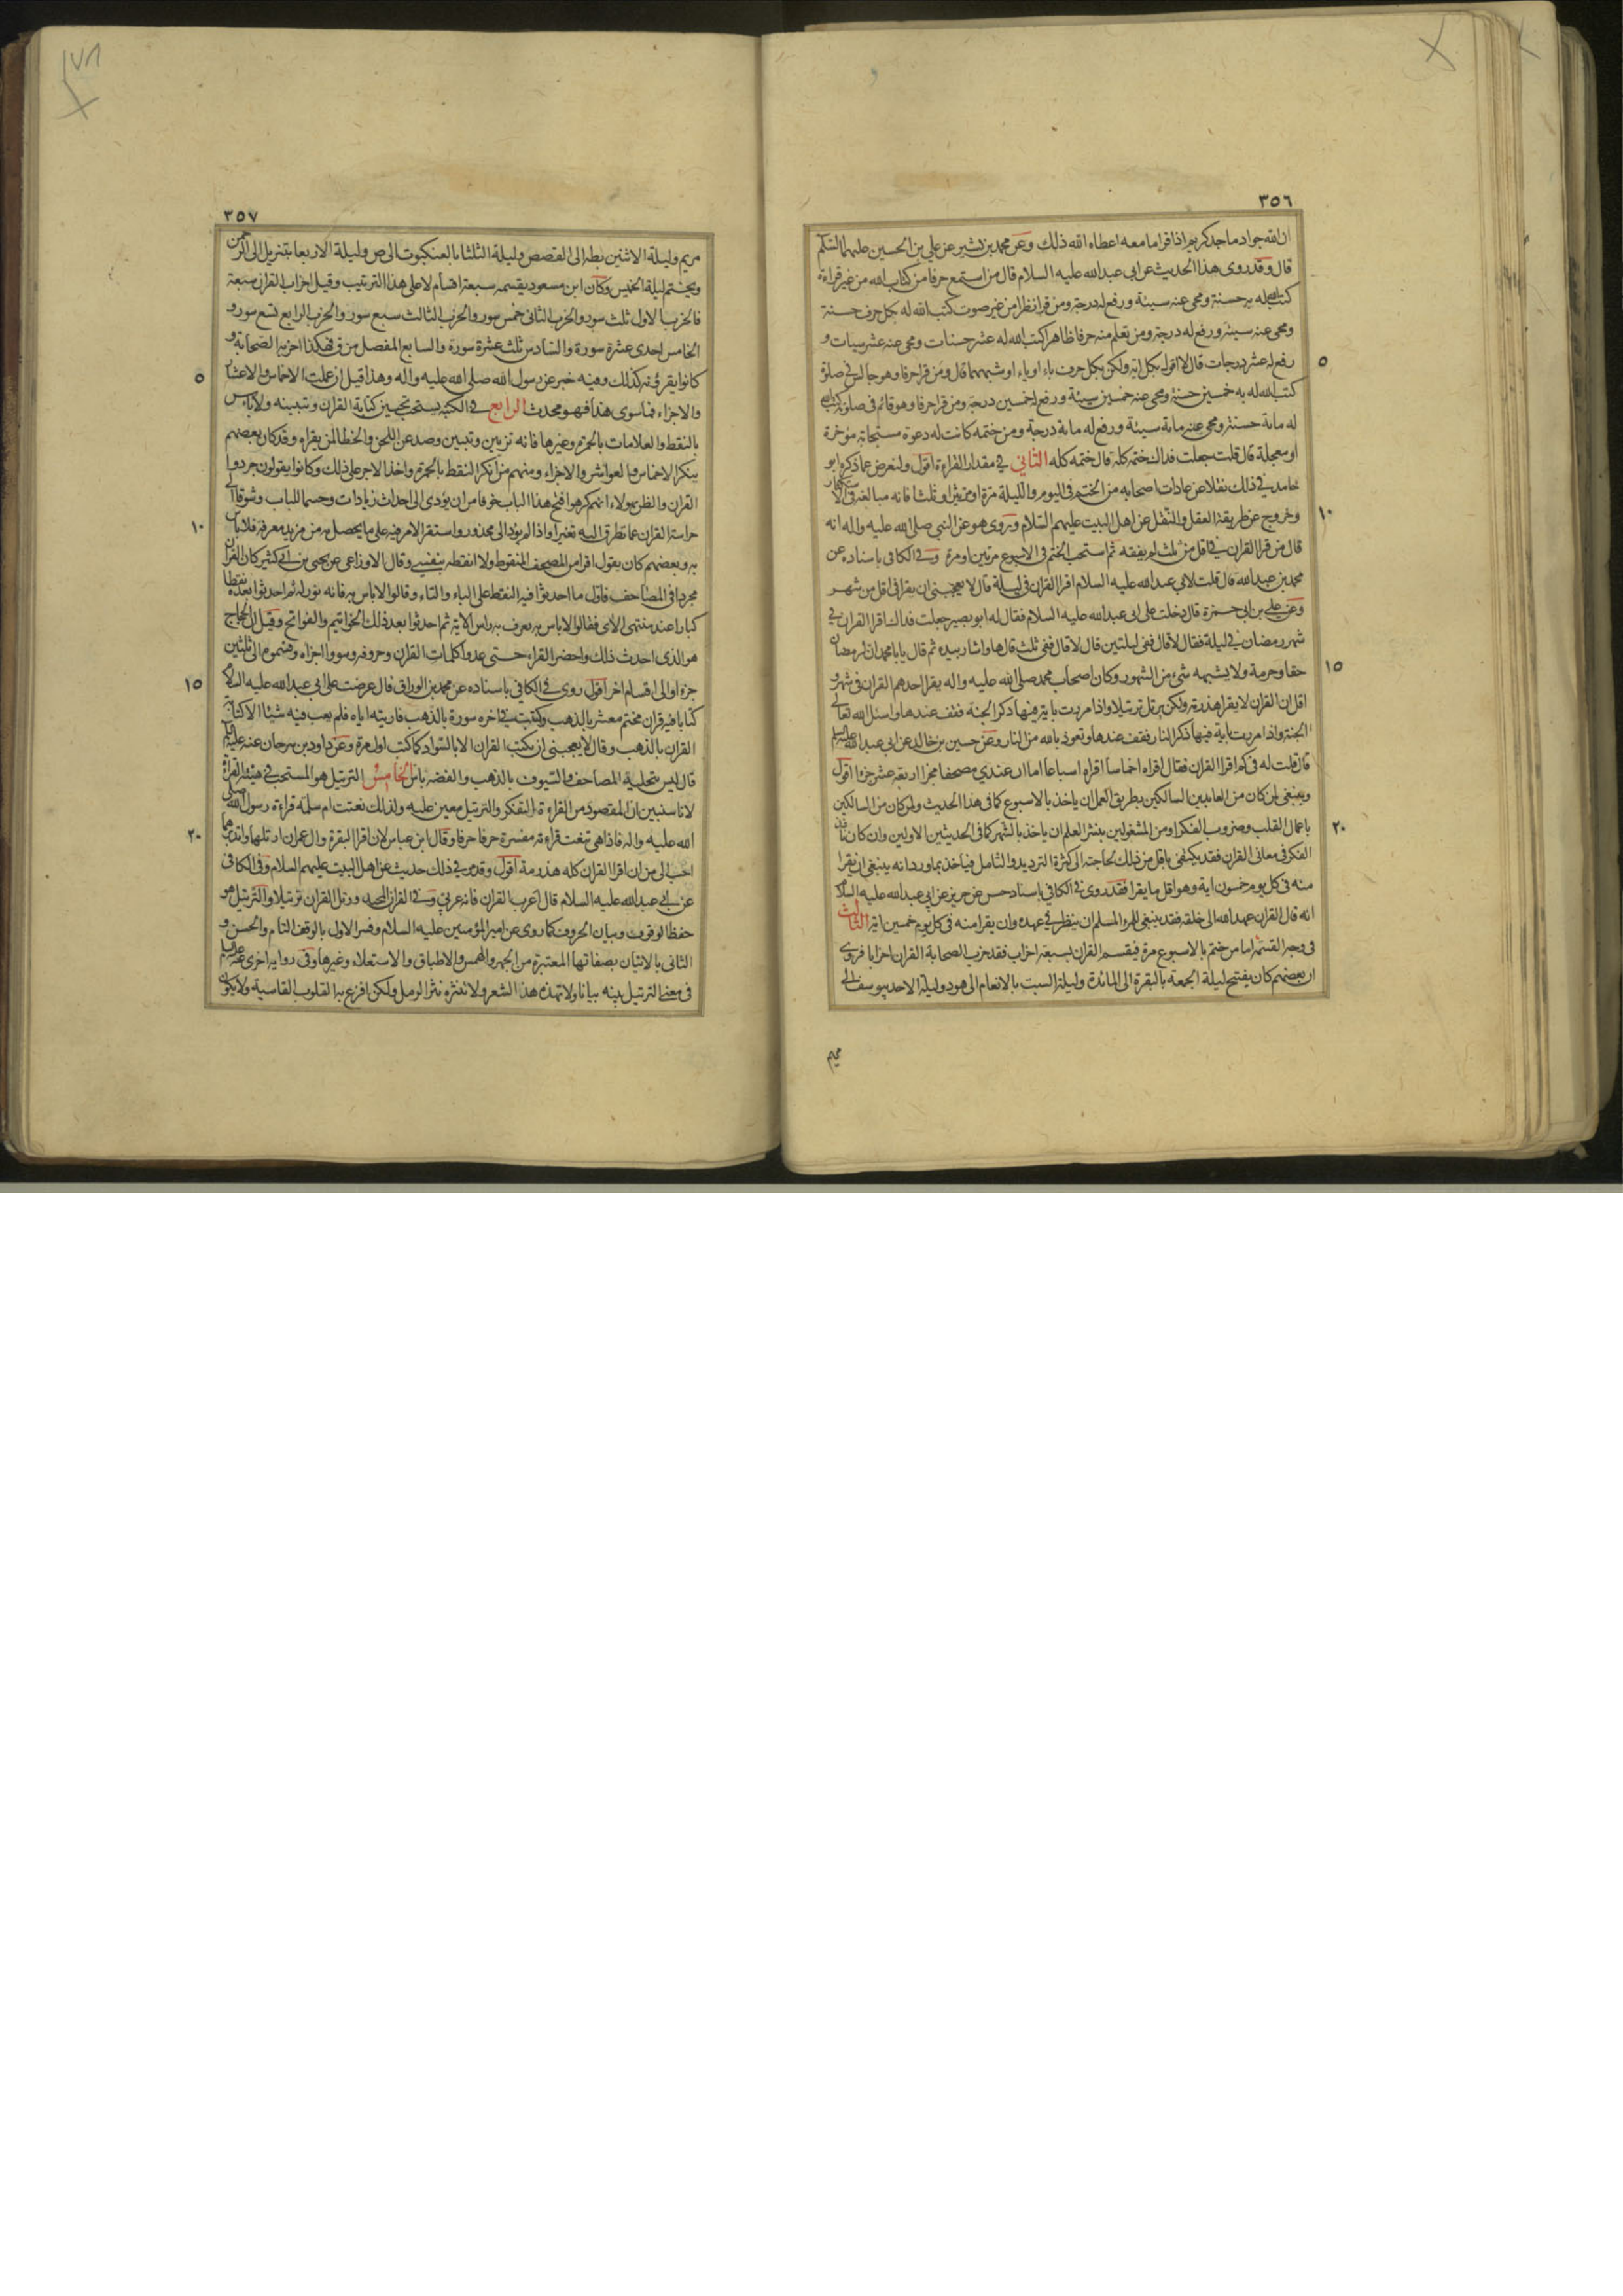 ٣٥٦
ان الله جواد ماجد كريم اذا قرا ما معه اعطاه الله ذلك وعن محمد بن بشير عن علي بن الحسين عليهما السلم
قال وقد روى هذا الحديث عن ابى عبد الله عليه السلام قال من استمع حرفا من كتاب الله من غير قراءة
كتب الله له به حسنة ومحى عنه سيئة ورفع له درجة ومن قرا نظرا من غير صوت كتب الله له بكل حرف حسنة
ومحى عنه سيئة ورفع له درجة ومن تعلم منه حرفا ظاهرا كتب الله له عشر حسنات ومحى عنه عشر سيات و
٥ رفع له عشر درجات قال لا اقول بكل اية ولكن بكل حرف باء او ياء او شبههما قال ومن قرا حرفا وهو جالس في صلوة
كتب الله له به خمسين حسنة ومحى عنه خمسين سيئة ورفع له خمسين درجة ومن قرا حرفا وهو قائم فى صلوته كتب الله
له مائة حسنة ومحى عنه مائة سيئة ورفع له مائة درجة ومن ختمه كانت له دعوة مستجابة مؤخرة
او معجلة قال قلت جعلت فداك ختمه كله قال ختمه كله الثاني في مقدار القراءة اقول ولنعرض عما ذكره ابو
حامد في ذلك نقلا عن عادات اصحابه من الختم فى اليوم والليلة مرة او مرتين او ثلثا فانه مبالغة في الاستكثار
١٠ وخروج عن طريقة العقل والنقل عن اهل البيت عليهم السلام وروى هو عن النبي صلى الله عليه واله انه
قال من قرا القران في اقل من ثلث لم يفقه ثم استحب الختم فى الاسبوع مرتين او مرة وفي الكافى باسناده عن
محمد بن عبد الله قال قلت لابي عبد الله عليه السلام اقرا القران في ليلة قال لا يعجبنى ان يقرا فى اقل من شهر
وعن على بن ابى حمزة قال دخلت على ابى عبد الله عليه السلام فقال له ابو بصير جعلت فداك اقرا القران في
شهر رمضان في ليلة فقال لا قال ففى ليلتين قال لا قال ففى ثلث قال ها واشار بيده ثم قال يا با محمد ان لرمضان
١٥ حقا وحرمة ولا يشبهه شيء من الشهور وكان اصحاب محمد صلى الله عليه واله يقرا احدهم القران فى شهر و
اقل ان القران لا يقرا هذرمة ولكن يرتل ترتيلا واذا مررت باية فيها ذكر الجنة فقف عندها واسئل الله تعالى
الجنة واذا مررت باية فيها ذكر النار فقف عندها وتعوذ بالله من النار وعن حسين بن خالد عن ابى عبد الله عليه السلم
قال قلت له فى كم اقرا القران فقال اقراه اخماسا اقراه اسباعا اما ان عندي مصحفا مجزا اربعة عشر جزءا اقول
وينبغى لمن كان من العابدين السالكين بطريق العمل ان ياخذ بالاسبوع كما فى هذا الحديث ولمن كان من السالكين
٢٠ باعمال القلب وضروب الفكر او من المشغولين بنشر العلم ان ياخذ بالشهر كما فى الحديثين الاولين وان كان نافذ
الفكر فى معانى القران فقد يكتفى باقل من ذلك لحاجته الى كثرة الترديد والتامل فياخذ بما ورد انه ينبغى ان يقرا
منه فى كل يوم خمسون اية وهو اقل ما يقرا فقد روى في الكافي باسناد حسن عن حريز عن ابي عبد الله عليه السلام
انه قال القران عهد الله الى خلقه فقد ينبغى للمرء المسلم ان ينظر في عهده وان يقرا منه فى كل يوم خمسين اية الثالث
فى وجه القسمة اما من ختم بالاسبوع مرة فيقسم القران بسبعة احزاب فقد حزب الصحابة القران احزابا فروى
ان بعضهم كان يفتتح ليلة الجمعة بالبقرة الى المائدة وليلة السبت بالانعام الى هود وليلة الاحد بيوسف الى
مريم
٣٥٧
مريم وليلة الاثنين بطه الى القصص وليلة الثلثا بالعنكبوت الى ص وليلة الاربعا بتنزيل الى الرحمن
ويختم ليلة الخميس وكان ابن مسعود يقسمه سبعة اقسام لا على هذا الترتيب وقيل احزاب القران سبعة
فالحزب الاول ثلث سور والحزب الثانى خمس سور والحزب الثالث سبع سور والحزب الرابع تسع سور و
الخامس احدى عشرة سورة والسادس ثلث عشرة سورة والسابع المفصل من ق فهكذا احزبه الصحابة و
٥ كانوا يقرؤنه كذلك وفيه خبر عن رسول الله صلى الله عليه واله وهذا قبل ان عملت الاخماس والاعشار
والاجزاء فما سوى هذا فهو محدث الرابع في الكتبة يستحب تحسين كتابة القران وتبيينه ولا باس
بالنقط والعلامات بالحمرة وغيرها فانه تزيين وتبيين وصد عن اللحن والخطا لمن يقراه وقد كان بعضهم
ينكر الاخماس والعواشر والاجزاء ومنهم من انكر النقط بالحمرة واخذ الاجر على ذلك وكانوا يقولون جردوا
القران والظن بهولاء انهم كرهوا فتح هذا الباب خوفا من ان يؤدى الى احداث زيادات وحسما للباب وشوقا الى
١٠ حراسة القران عما تطرق اليه تغيرا واذا لم يؤد الى محذور واستقر الامر فيه على ما يحصل به من مزيد معرفة فلا باس
به وبعضهم كان يقول اقرا من المصحف المنقوط ولا انقطه بنفسي وقال الاوزاعى عن يحيى بن ابى كثير كان القران
مجردا فى المصاحف فاول ما احدثوا فيه النقط على الباء والتاء وقالوا لا باس به فانه نور له ثم احدثوا بعده نقطا
كبارا عند منتهى الاى فقالوا لا باس به يعرف به راس الاية ثم احدثوا بعد ذلك الخواتيم والفواتح وقيل ان الحجاج
هو الذى احدث ذلك واحضر القراء حتى عدوا كلمات القران وحروفه وسووا اجزاءه وقسموه الى ثلثين
١٥ جزءا والى اقسام اخر اقول روى في الكافي باسناده عن محمد بن الوراق قال عرضت على ابى عبد الله عليه السلام
كتابا فيه قران مختم معشر بالذهب وكتبت في اخره سورة بالذهب فاريته اياه فلم يعب فيه شيئا الا كتابة
القران بالذهب وقال لا يعجبنى ان يكتب القران الا بالسواد كما كتب اول مرة وعن داود بن سرحان عنه عليه السلم
قال ليس بتحلية المصاحف والسيوف بالذهب والفضة باس الخامس الترتيل هو المستحب في هيئة القراة
لانا سنبين ان المقصود من القراءة التفكر والترتيل معين عليه ولذلك نعتت ام سلمة قراءة رسول الله صلى
٢٠ الله عليه واله فاذا هى تنعت قراءة مفسرة حرفا حرفا وقال ابن عباس لان اقرا البقرة وال عمران ارتلهما واتدبرهما
احب الى من ان اقرا القران كله هذرمة اقول وقد مر في ذلك حديث عن اهل البيت عليهم السلام وفى الكافى
عن ابى عبد الله عليه السلام قال اعرب القران فانه عربي وفي القران المجيد ورتل القران ترتيلا والترتيل هو
حفظ الوقوف وبيان الحروف كما روى عن امير المؤمنين عليه السلام وفسر الاول بالوقف التام والحسن و
الثانى بالاتيان بصفاتها المعتبرة من الجهر والهمس والاطباق والاستعلاء وغيرها وفى رواية اخرى عنه عليه السلم
فى معنى الترتيل بينه بيانا ولا تهذه هذا الشعر ولا تنثره نثر الرمل ولكن افزع به القلوب القاسية ولا يكون